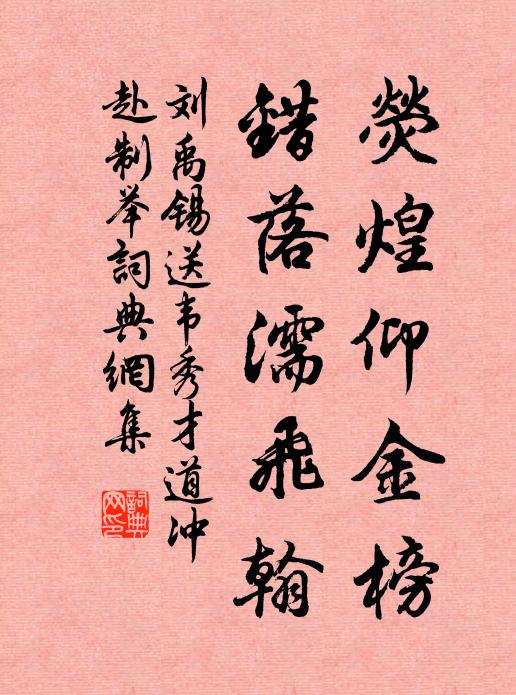 荧煌仰金榜
错落濡飞翰
刘禹锡送韦秀才道冲
赴制举詞典網集
詞典网印